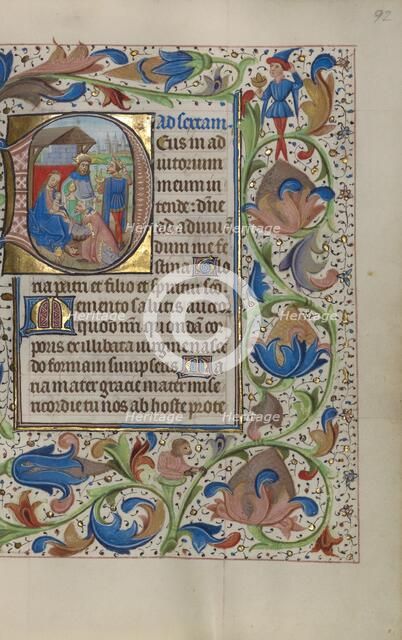 92
Ad sextam
Eus in ad
iutorium
meum in
tende: dñe
ad adiuuā
dum me fe
stina Glo
ria patri et filio et spiritui scō
Memento salutis auctor
quod nrī quondā cor
poris ex illibata uirgine nasce
do formam sumpseris Ma
ria mater gracie mater mise
ricordie tu nos ab hoste prote
heritage-images
heritage-images